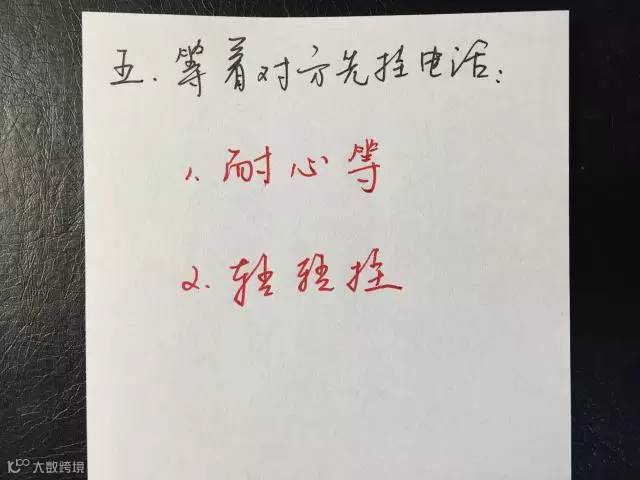 五.等着对方先挂电话：
1.耐心等
2.轻轻挂
大数跨境